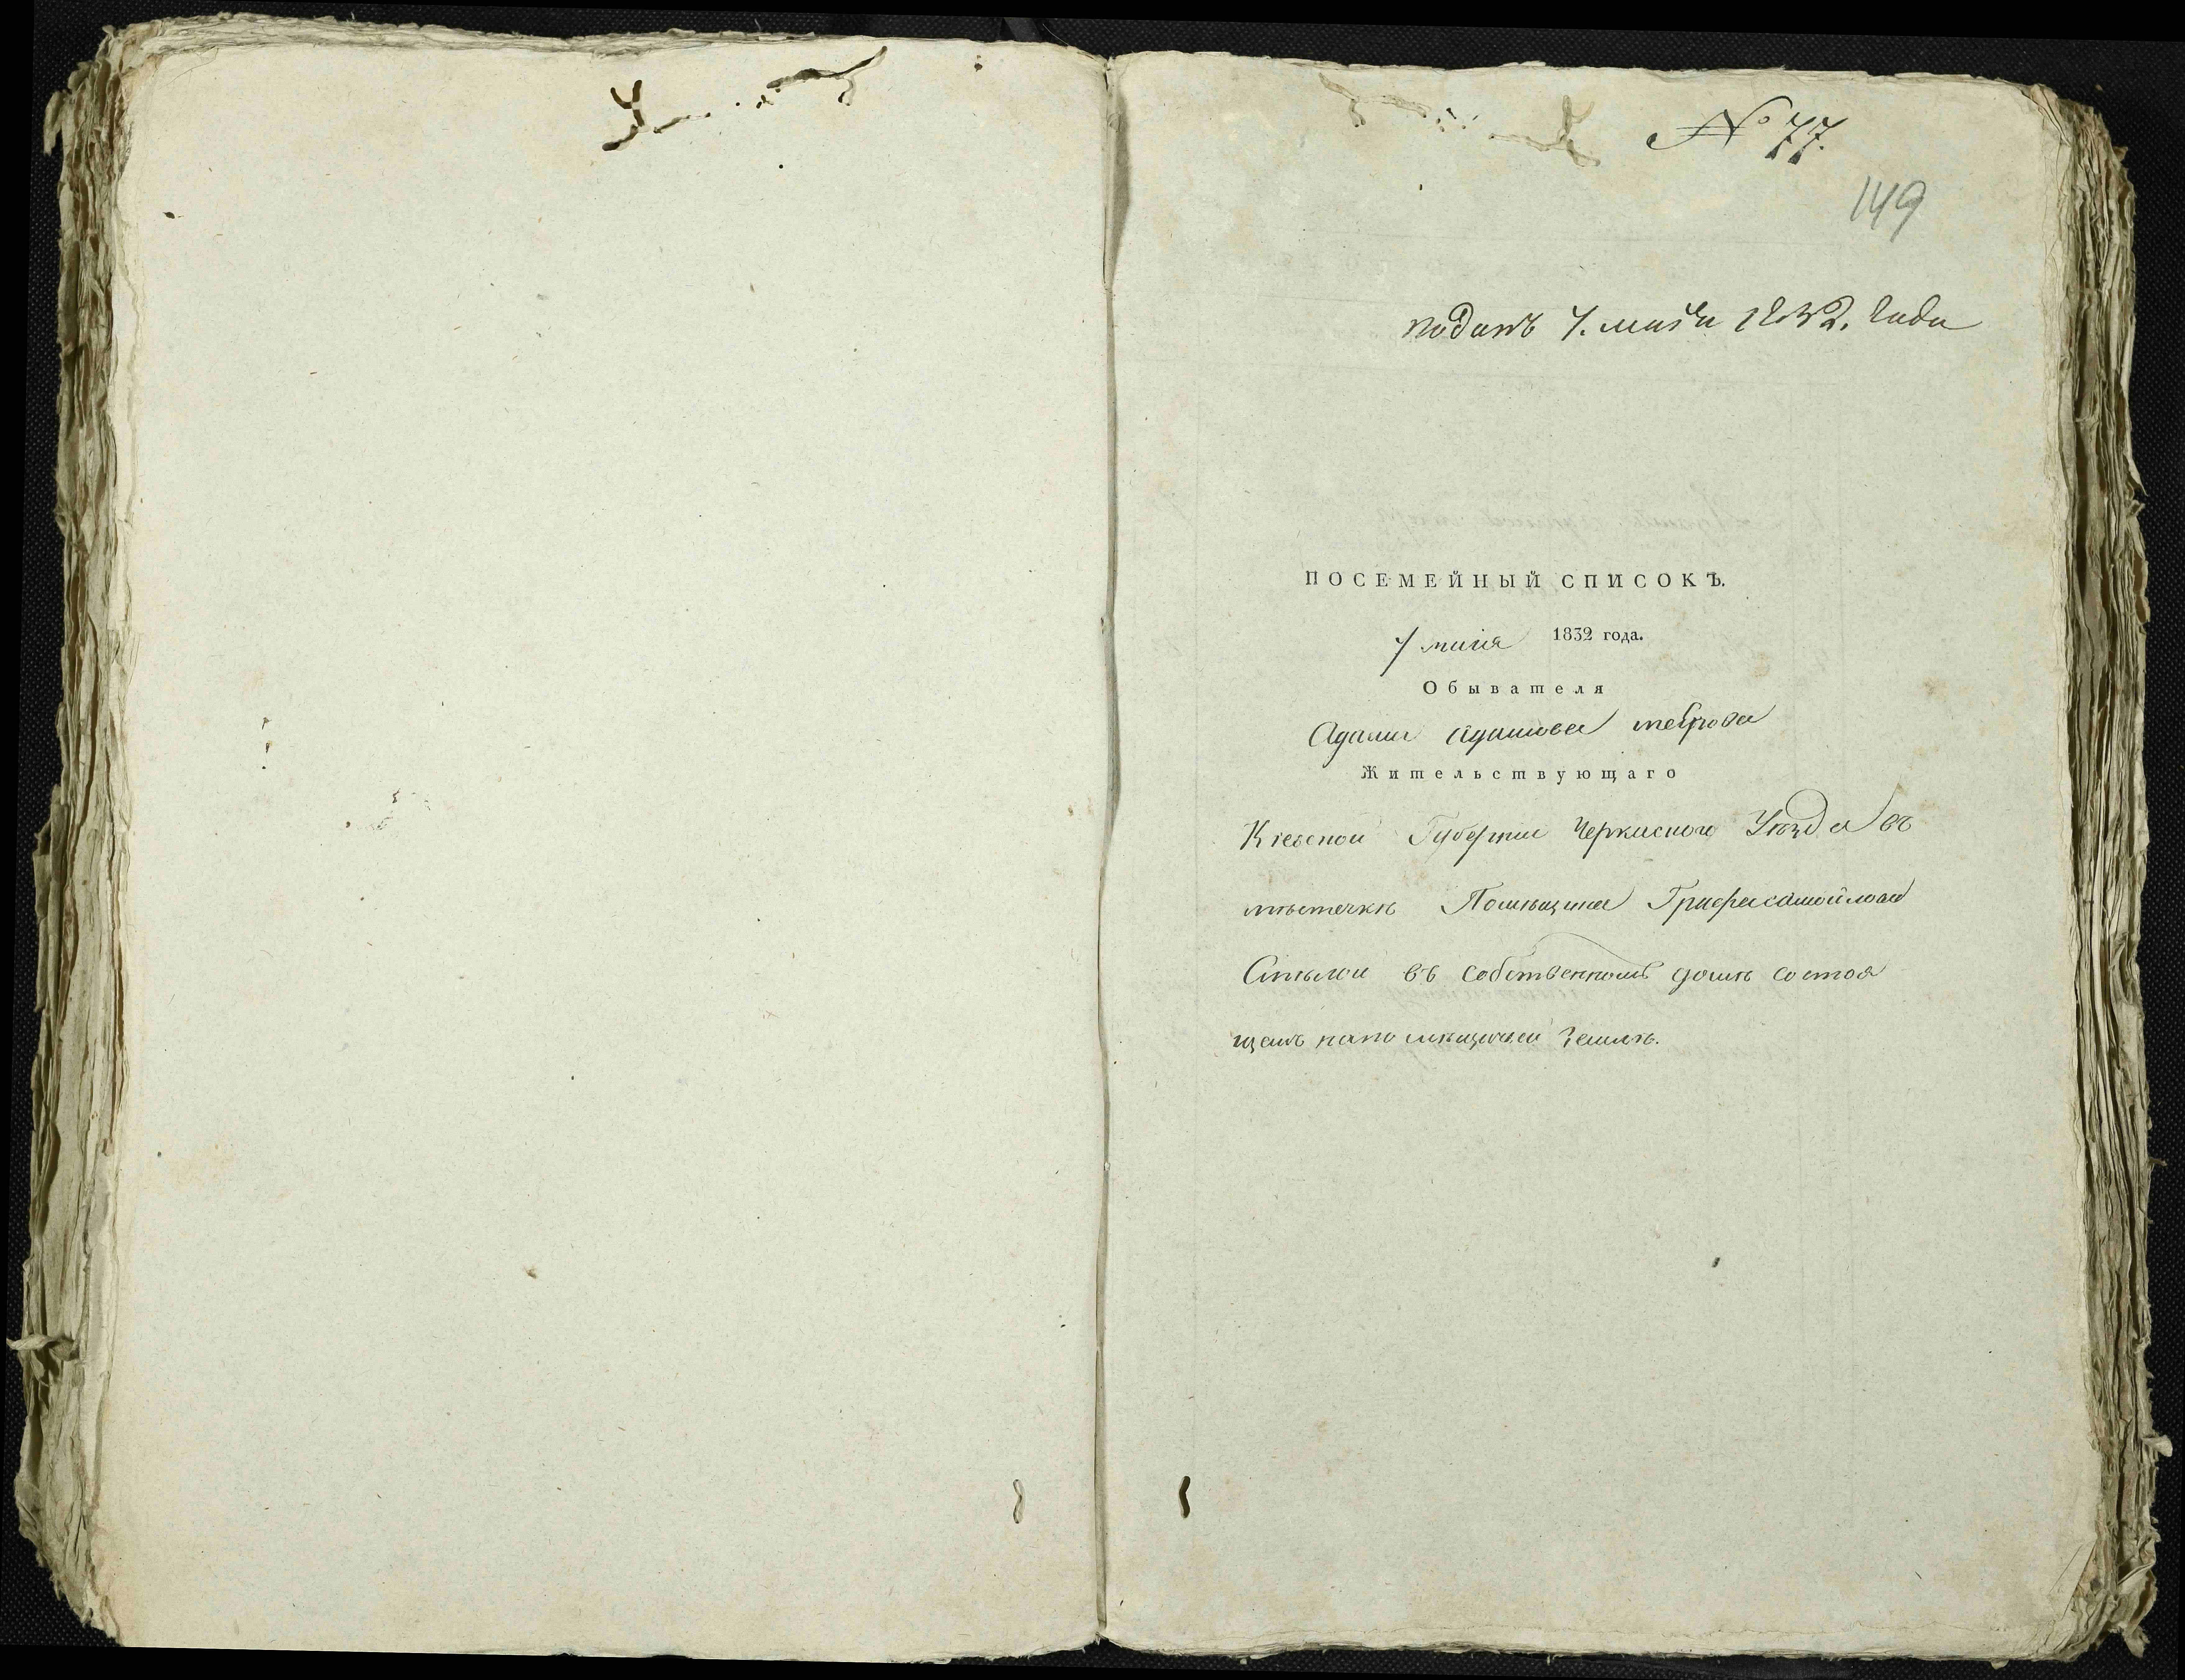 № 77.
149
поданъ 7. маія 1832. года
ПОСЕМЕЙНЫЙ СПИСОКЪ.
7 маія 1832 года.
Обывателя
Адама Адамова
Жительствующаго
Кіевской Губерніи Черкаскаго Уѣзда въ
мѣстечкѣ Помѣщика Графа Самойлова
Смѣлой въ собственномъ домѣ состоя
щемъ на помѣщичьей Землѣ.